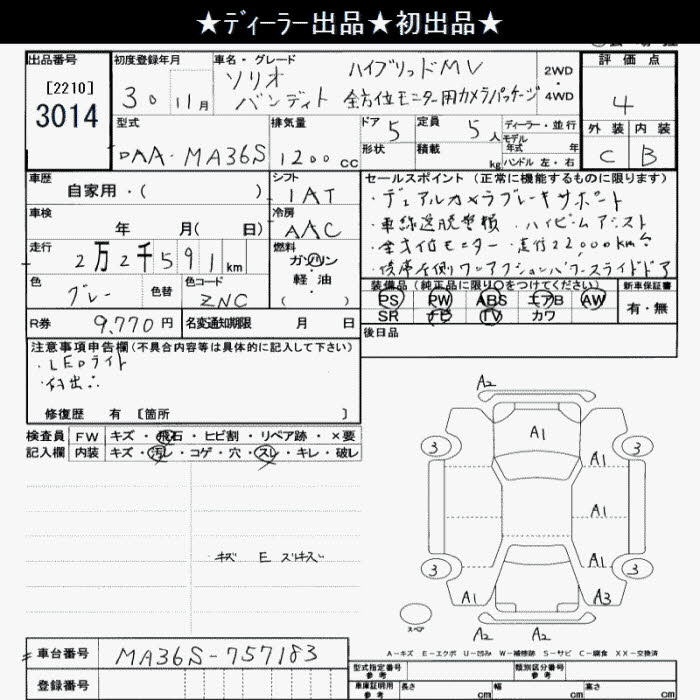 ★ディーラー出品★初出品★
出品番号
[2210]
3014
初度登録年月
30 11月
車名・グレード
ソリオ ハイブリッドMV
バンディト 全方位モニター用カメラパッケージ
2WD
4WD
評価点
4
外装 内装
C B
型式
DAA-MA36S
排気量
1200cc
ドア 5
形状
定員 5人
積載 kg
ディーラー・並行
モデル年式 年
ハンドル 左・右
車歴
自家用・( )
シフト
IAT
車検
年 月( 日)
冷房
AAC
走行
2万2千591km
燃料
ガソリン
軽油
( )
色
グレー
色替
色コード
ZNC
R券 9,770円
名変通知期限 月 日
セールスポイント(正常に機能するものに限ります)
・デュアルカメラブレーキサポート
・車線逸脱警報・ハイビームアシスト
・全方位モニター・走行22,000km台
・後席左側ワンアクションパワースライドドア
装備品(純正品に限り○をつけてください)
PS PW ABS エアB AW
SR ナビ TV カワ
新車保証書
有・無
後日品
注意事項申告欄(不具合内容等は具体的に記入して下さい)
・LEDライト
修復歴 有 [箇所 ]
検査員 FW キズ・飛石・ヒビ割・リペア跡・×要
記入欄 内装 キズ・汚レ・コゲ・穴・スレ・キレ・破レ
キズ E
A2
A1
3 3
A1
A1
A1
3 3
A1 A3
スペア
A2 A2
A-キズ E-エクボ U-凹み W-補修跡 S-サビ C-腐食 XX-交換済
車台番号 MA36S-757183
登録番号
型式指定番号
参考
類別区分番号
参考
車庫証明用
参考
長さ cm 幅 cm 高さ cm